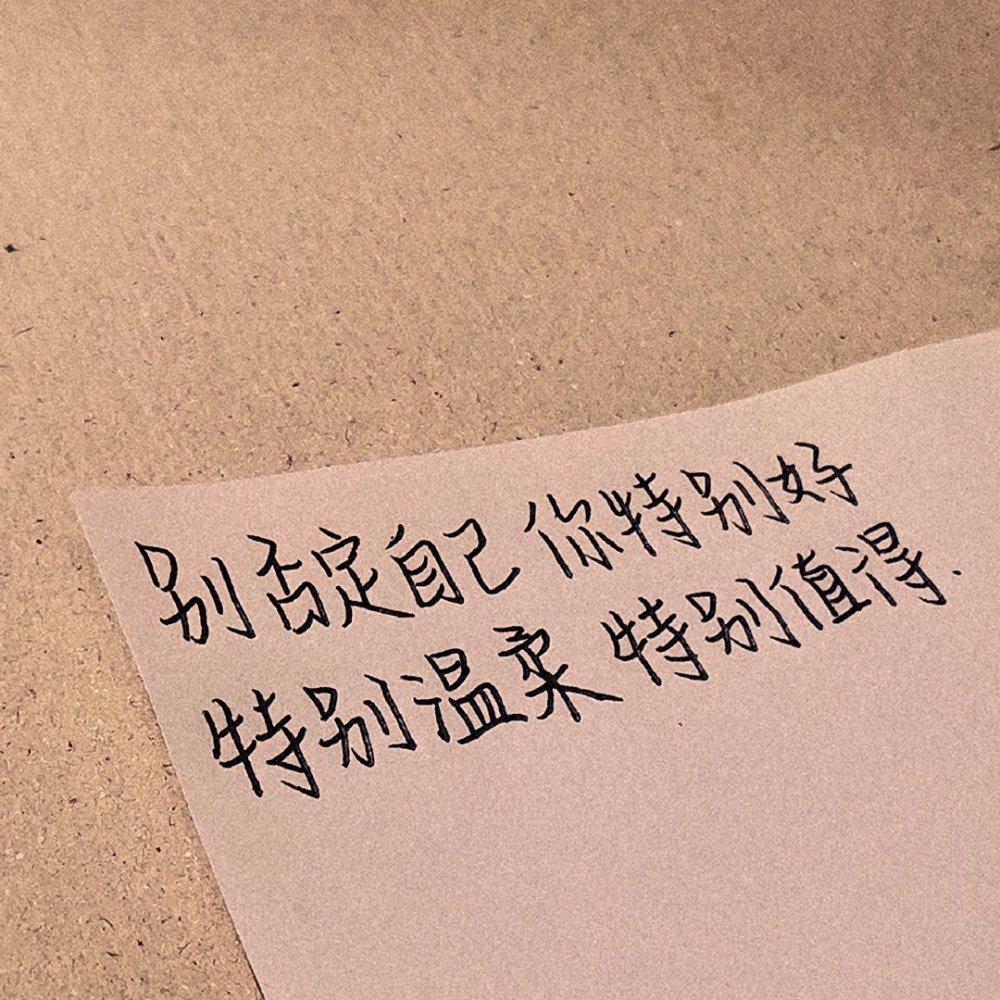 别否定自己 你特别好
特别温柔 特别值得.